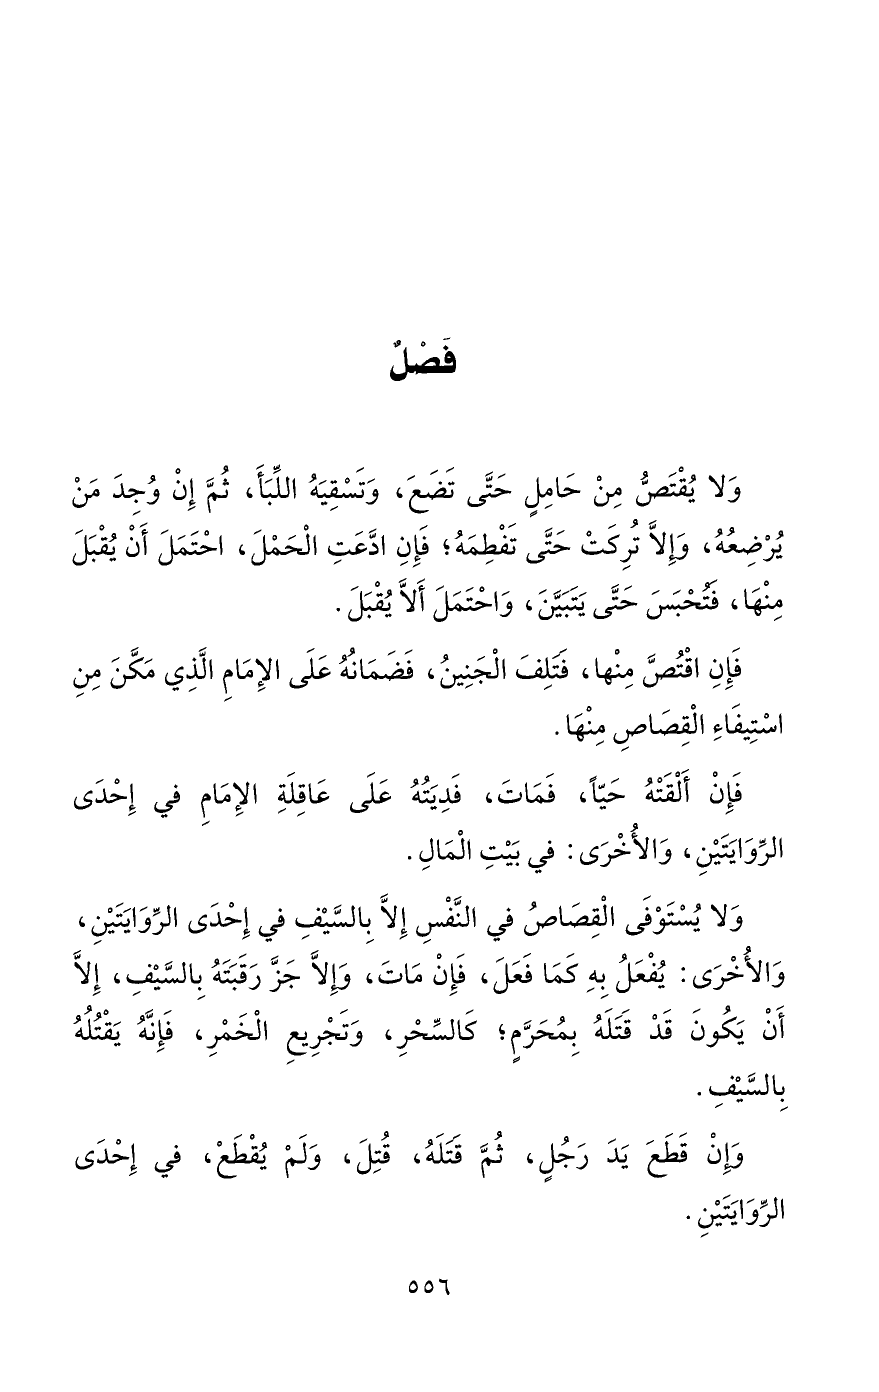 فَصْلٌ
وَلا يُقْتَصُّ مِنْ حَامِلٍ حَتَّى تَضَعَ، وَتَسْقِيَهُ اللِّبَأَ، ثُمَّ إِنْ وُجِدَ مَنْ
يُرْضِعُهُ، وَإِلاَّ تُرِكَتْ حَتَّى تَفْطِمَهُ؛ فَإِنِ ادَّعَتِ الْحَمْلَ، احْتَمَلَ أَنْ يُقْبَلَ
مِنْهَا، فَتُحْبَسَ حَتَّى يَتَبَيَّنَ، وَاحْتَمَلَ أَلاَّ يُقْبَلَ.
فَإِنِ اقْتُصَّ مِنْها، فَتَلِفَ الْجَنِينُ، فَضَمَانُهُ عَلَى الإِمَامِ الَّذِي مَكَّنَ مِنِ
اسْتِيفَاءِ الْقِصَاصِ مِنْهَا.
فَإِنْ أَلْقَتْهُ حَيّاً، فَمَاتَ، فَدِيَتُهُ عَلَى عَاقِلَةِ الإِمَامِ في إِحْدَى
الرِّوَايَتَيْنِ، وَالأُخْرَى: في بَيْتِ الْمَالِ.
وَلا يُسْتَوْفَى الْقِصَاصُ في النَّفْسِ إِلاَّ بِالسَّيْفِ في إِحْدَى الرِّوَايَتَيْنِ،
وَالأُخْرَى: يُفْعَلُ بِهِ كَمَا فَعَلَ، فَإِنْ مَاتَ، وَإِلاَّ جَزَّ رَقَبَتَهُ بِالسَّيْفِ، إِلاَّ
أَنْ يَكُونَ قَدْ قَتَلَهُ بِمُحَرَّمٍ؛ كَالسِّحْرِ، وَتَجْرِيعِ الْخَمْرِ، فَإِنَّهُ يَقْتُلُهُ
بِالسَّيْفِ.
وَإِنْ قَطَعَ يَدَ رَجُلٍ، ثُمَّ قَتَلَهُ، قُتِلَ، وَلَمْ يُقْطَعْ، في إِحْدَى
الرِّوَايَتَيْنِ.
٥٥٦